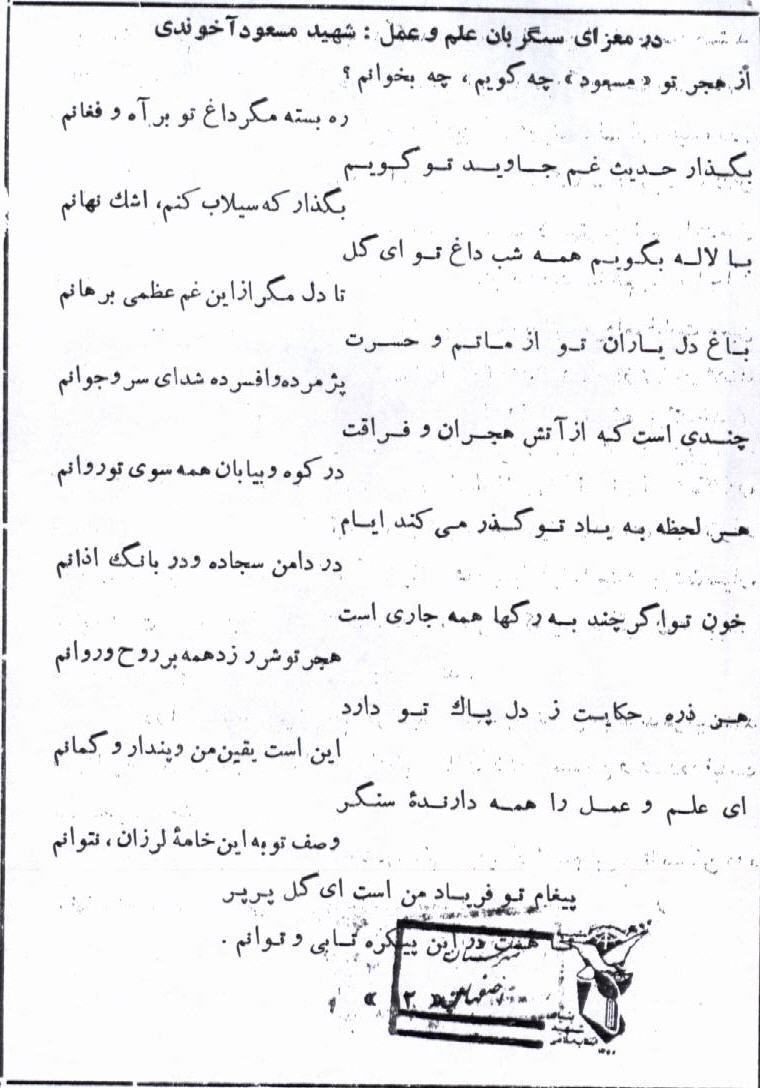 در معزای سنگربان علم و عمل : شهید مسعود آخوندی
از هجر تو « مسعود » چه گویم ، چه بخوانم ؟
ره بسته مگر داغ تو بر آه و فغانم
بگذار حدیث غم جاوید تو گویم
بگذار که سیلاب کنم، اشك نهانم
با لاله بگویم همه شب داغ تو ای گل
تا دل مگر از این غم عظمی برهانم
باغ دل یاران تو از ماتم و حسرت
پژمرده و افسرده شد ای سرو جوانم
چندی است که از آتش هجران و فراقت
در کوه و بیابان همه سوی تو روانم
هر لحظه به یاد تو گذر می کند ایام
در دامن سجاده و در بانگ اذانم
خون تو اگر چند به رگها همه جاری است
هجر تو شرر زد همه بر روح و روانم
هر ذره حکایت ز دل پاك تو دارد
این است یقین من و پندار و گمانم
ای علم و عمل را همه دارندهٔ سنگر
وصف تو به این خامهٔ لرزان ، نتوانم
پیغام تو فریاد من است ای گل پرپر
تا هست در این پیکره تابی و توانم .
« ۲ »
بنیاد
شهید